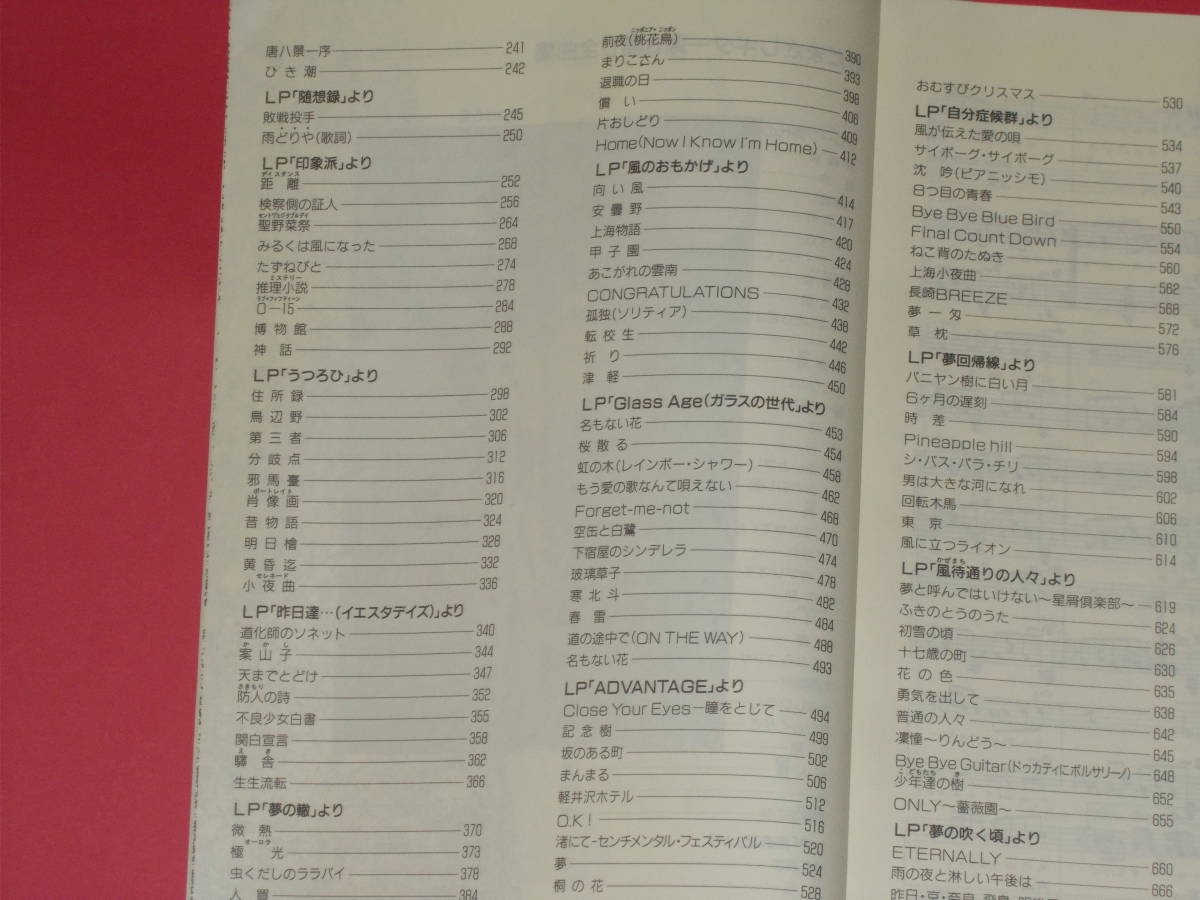 唐八景―序 241
ひき潮 242
LP「随想録」より
敗戦投手 245
雨どりや(歌詞) 250
LP「印象派」より
ディスタンス
距離 252
検察側の証人 256
セントヴェジタブルデイ
聖野菜祭 264
みるくは風になった 268
たずねびと 274
ミステリー
推理小説 278
ラブ・フィフティーン
0―15 284
博物館 288
神話 292
LP「うつろひ」より
住所録 298
鳥辺野 302
第三者 306
分岐点 312
邪馬臺 316
ポートレイト
肖像画 320
昔物語 324
明日檜 328
黄昏迄 332
セレネード
小夜曲 336
LP「昨日達…(イエスタデイズ)」より
道化師のソネット 340
かかし
案山子 344
天までとどけ 347
さきもり
防人の詩 352
不良少女白書 355
関白宣言 358
えき
驛舎 362
生生流転 366
LP「夢の轍」より
微熱 370
オーロラ
極光 373
虫くだしのララバイ 378
人買 384
ニッポニア・ニッポン
前夜(桃花鳥) 390
まりこさん 393
退職の日 398
償い 406
片おしどり 409
Home(Now I Know I'm Home) 412
LP「風のおもかげ」より
向い風 414
安曇野 417
上海物語 420
甲子園 424
あこがれの雲南 428
CONGRATULATIONS 432
孤独(ソリティア) 438
転校生 442
祈り 446
津軽 450
LP「Glass Age(ガラスの世代」より
名もない花 453
桜散る 454
虹の木(レインボー・シャワー) 458
もう愛の歌なんて唄えない 462
Forget-me-not 468
空缶と白鷺 470
下宿屋のシンデレラ 474
玻璃草子 478
寒北斗 482
春雷 484
道の途中で(ON THE WAY) 488
名もない花 493
LP「ADVANTAGE」より
Close Your Eyes―瞳をとじて 494
記念樹 499
坂のある町 502
まんまる 506
軽井沢ホテル 512
O.K! 516
渚にて-センチメンタル・フェスティバル 520
夢 524
桐の花 528
おむすびクリスマス 530
LP「自分症候群」より
風が伝えた愛の唄 534
サイボーグ・サイボーグ 537
沈吟(ピアニッシモ) 540
8つ目の青春 543
Bye Bye Blue Bird 550
Final Count Down 554
ねこ背のたぬき 560
上海小夜曲 562
長崎BREEZE 568
夢一匁 572
草枕 576
LP「夢回帰線」より
バニヤン樹に白い月 581
6ヶ月の遅刻 584
時差 590
Pineapple hill 594
シ・バス・パラ・チリ 598
男は大きな河になれ 602
回転木馬 606
東京 610
風に立つライオン 614
かぜまち
LP「風待通りの人々」より
夢と呼んではいけない～星屑倶楽部～ 619
ふきのとうのうた 624
初雪の頃 626
十七歳の町 630
花の色 635
勇気を出して 638
普通の人々 642
凜憧～りんどう～ 645
Bye Bye Guitar(ドゥカティにボルサリーノ) 648
こどもたち き
少年達の樹 652
ONLY～薔薇園～ 655
LP「夢の吹く頃」より
ETERNALLY 660
雨の夜と淋しい午後は 666
昨日・京・奈良、飛鳥、明後日